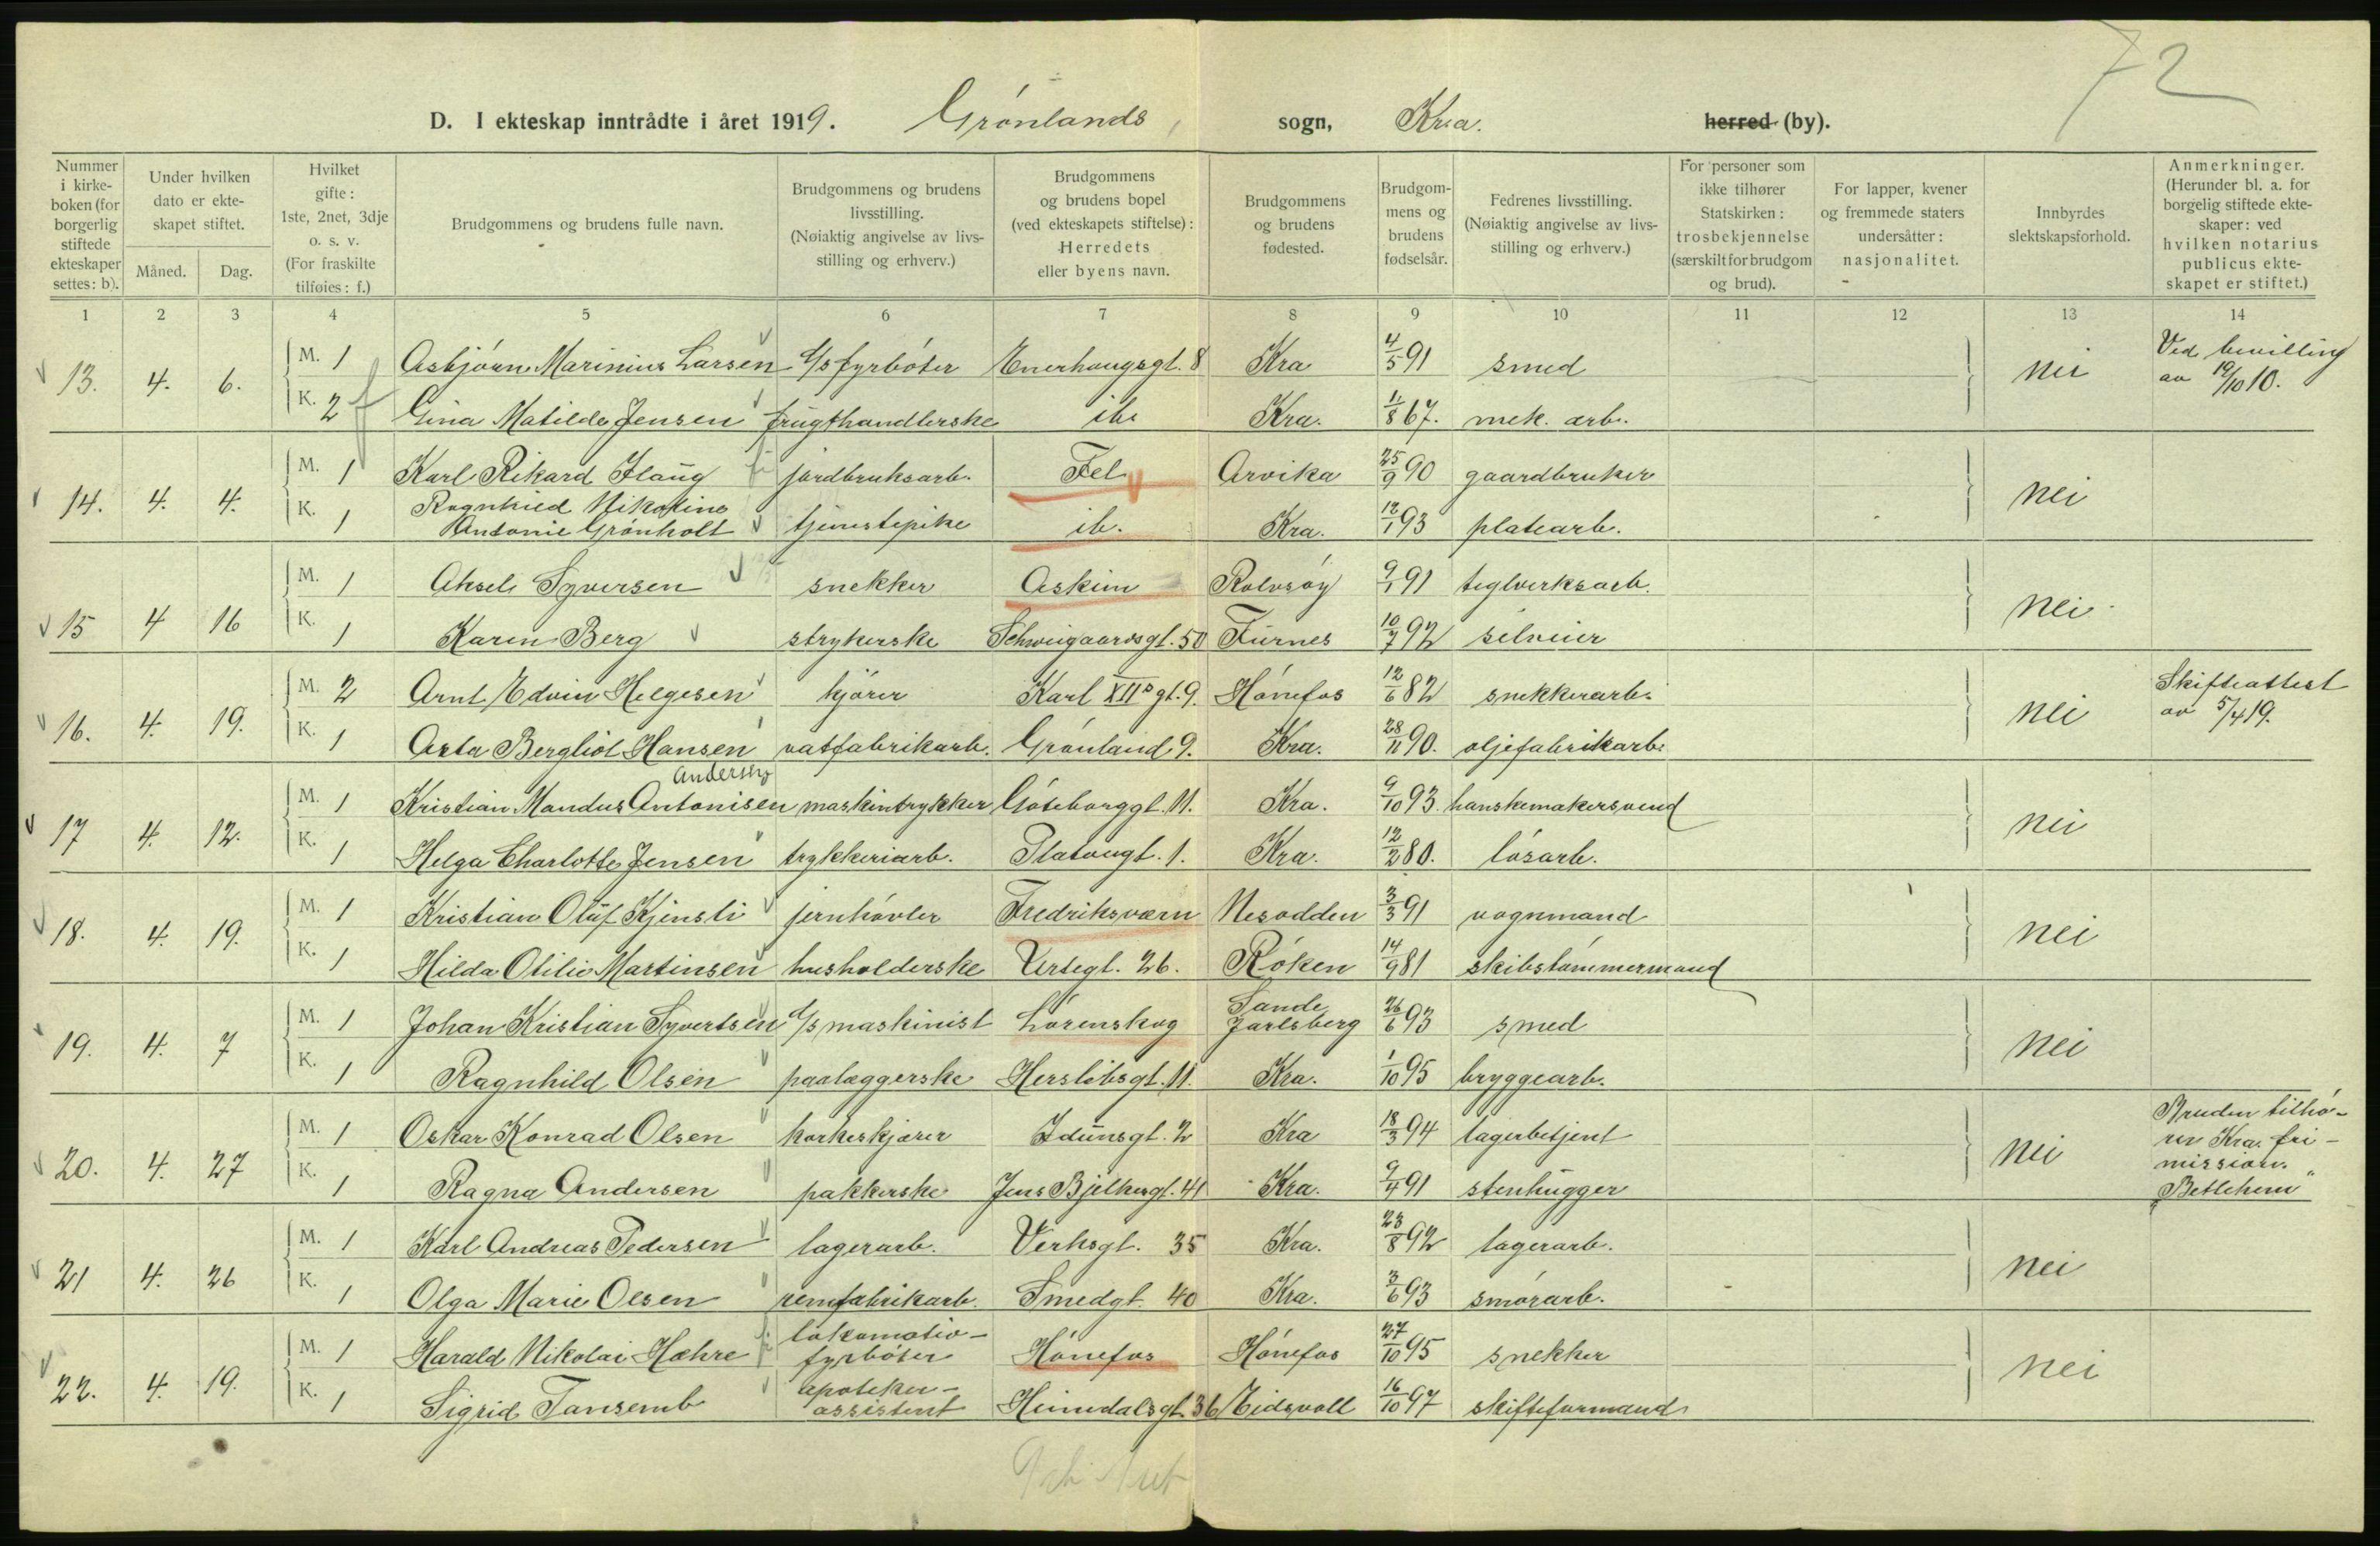 72
D. I ekteskap inntrådte i året 1919. Grønlands sogn, Kra. herred (by).
Nummer i kirkeboken (for borgerlig stiftede ekteskaper settes: b).
Under hvilken dato er ekteskapet stiftet.
Måned. Dag.
Hvilket gifte: 1ste, 2net, 3dje o. s. v. (For fraskilte tilføies: f.)
Brudgommens og brudens fulle navn.
Brudgommens og brudens livsstilling. (Nøiaktig angivelse av livsstilling og erhverv.)
Brudgommens og brudens bopel (ved ekteskapets stiftelse): Herredets eller byens navn.
Brudgommens og brudens fødested.
Brudgommens og brudens fødselsår.
Fedrenes livsstilling. (Nøiaktig angivelse av livsstilling og erhverv.)
For personer som ikke tilhører Statskirken: trosbekjennelse (særskilt for brudgom og brud).
For lapper, kvener og fremmede staters undersåtter: nasjonalitet.
Innbyrdes slektskapsforhold.
Anmerkninger. (Herunder bl. a. for borgelig stiftede ekteskaper: ved hvilken notarius publicus ekteskapet er stiftet.)
1 2 3 4 5 6 7 8 9 10 11 12 13 14
13. 4. 6. M. 1 Asbjörn Marinius Larsen d/s fyrböter Enerhaugsgt. 8 Kra 4/5 91 smed nei Ved bevilling av 19/10 10.
K. 2 f Gina Matilde Jensen frugthandlerske ib. Kra. 11/8 67. mek. arb.
14. 4. 4. M. 1 Karl Rikard Flaug jordbruksarb. Fet Arvika 25/9 90 gaardbruker nei
K. 1 Ragnhild Nikoline Antonie Grönholt tjenestepike ib. Kra. 12/1 93 platearb.
15 4 16 M. 1 Aksel Syversen snekker Askim Rolvsöy 9/1 91 teglverksarb. nei
K. 1 Karen Berg strykerske Schweigaardsgt. 50 Furnes 10/7 92 selveier
16. 4. 19. M. 2 Arnt Edvin Helgesen kjörer Karl XIIs gt. 9. Hönefos 12/6 82 snekkerarb. nei Skifteattest av 5/4 19.
K. 1 Asta Bergliot Hansen vatfabrikarb. Grönland 9. Kra. 28/11 90. oljefabrikarb.
Andersen
17 4. 12. M. 1 Kristian Mandus Antonisen maskintrykker Göteborggt. 11. Kra. 9/10 93. hanskemakersvend nei
K. 1 Helga Charlotte Jensen trykkeriarb. Platougt. 1. Kra. 12/2 80. lösarb.
18. 4. 19. M. 1 Kristian Oluf Kjensli jernhövler Fredriksværn Nesodden 3/3 91 vognmand nei
K. 1 Hilda Otilie Martinsen husholderske Urtegt. 26. Röken 14/9 81 skibstömmermand
19. 4. 7 M. 1 Johan Kristian Syvertsen d/s maskinist Lörenskog Sande Jarlsberg 26/6 93 smed nei
K. 1 Ragnhild Olsen paalæggerske Herslebsgt. 11. Kra. 1/10 95 bryggearb.
20. 4. 27 M. 1 Oskar Konrad Olsen korkeskjærer Idunsgt. 2 Kra 18/3 94 lagerbetjent nei Bruden tilhö-
rer Kra. fri-
mission.
"Betlehem"
K. 1 Ragna Andersen pakkerske Jens Bjelkesgt. 41 Kra. 9/4 91 stenhugger
21 4. 26 M. 1 Karl Andreas Pedersen lagerarb. Verksgt. 35 Kra. 23/8 92 lagerarb. nei
K. 1 Olga Marie Olsen remfabrikarb. Smedgt. 40 Kra. 3/6 93 smörarb.
22. 4. 19. M. 1 Harald Nikolai Hæhre lokomotiv-fyrböter Hönefos Hönefos 27/10 95 snekker nei
K. 1 Sigrid Tansemb apoteker-assistent Heimdalsgt. 36 Eidsvoll 16/10 97 skifteformand